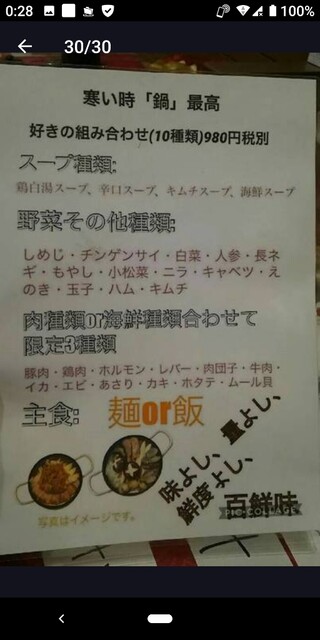 0:28
100%
30/30
寒い時「鍋」最高
好きの組み合わせ(10種類)980円税別
スープ種類:
鶏白湯スープ、辛口スープ、キムチスープ、海鮮スープ
野菜その他種類:
しめじ・チンゲンサイ・白菜・人参・長ネ
ギ・もやし・小松菜・ニラ・キャベツ・え
のき・玉子・ハム・キムチ
肉種類or海鮮種類合わせて
限定3種類
豚肉・鶏肉・ホルモン・レバー・肉団子・牛肉・
イカ・エビ・あさり・カキ・ホタテ・ムール貝
主食: 麺or飯
味よし、量よし、
鮮度よし、
百鮮味
PIC COLLAGE
写真はイメージです。